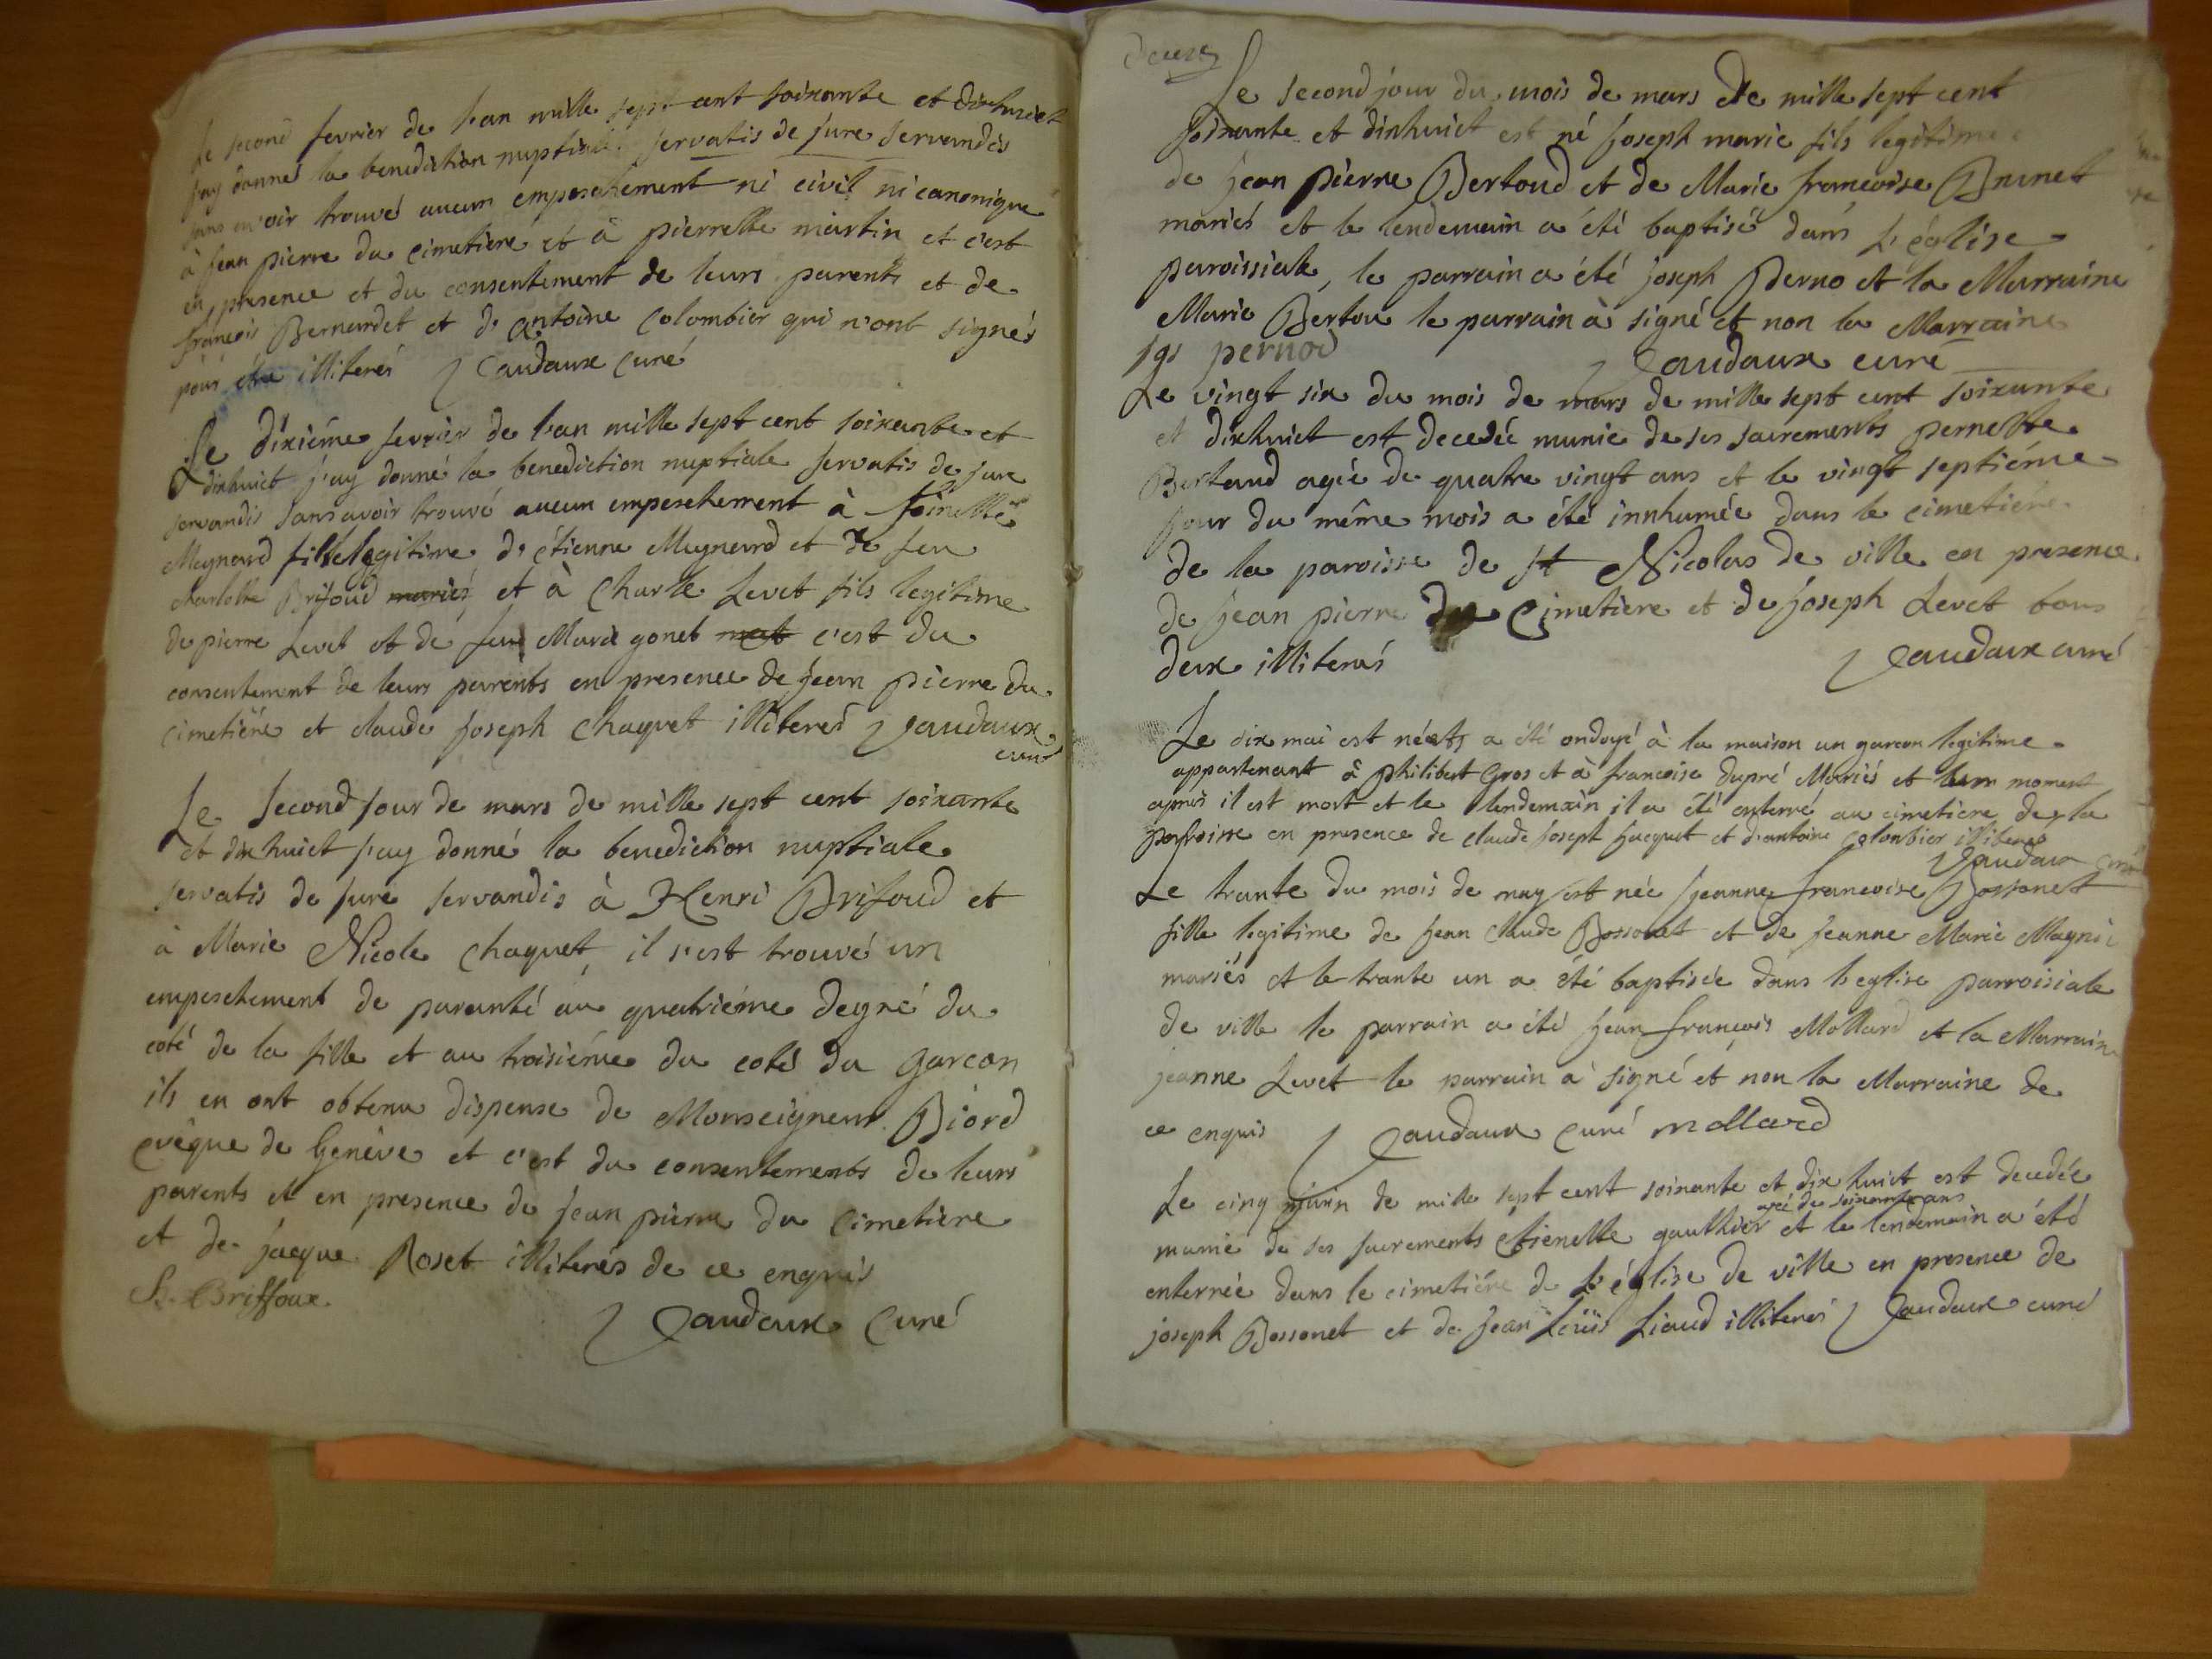 Le second fevrier de l'an mille sept cent soixante et dixhuict
j'ay donné la benediction nuptiale servatis de jure servandis
sans avoir trouvé aucun empeschement ni civil ni canonique
à jean pierre du cimetiere et à pierrette martin et c'est
en presence et du consentement de leurs parents et de
françois Bernardet et d'antoine Colombier qui n'ont signés
pour être illiterés Vaudaux Curé
Le dixiéme fevrier de l'an mille sept cent soixante et
dixhuict j'ay donné la benediction nuptiale servatis de jure
servandis sans avoir trouvé aucun empeschement à
Meynard fille legitime d'étienne Meynard et de feu
charlotte Brifoud mariés et à Charle Levet fils legitime
de pierre Levet et de feu Marie gonet c'est du
consentement de leurs parents en presence de jean pierre du
cimetiére et claude joseph Chaquet illiterés Vaudaux
curé
Le Second jour de mars de mille sept cent soixante
et dixhuict j'ay donné la benediction nuptiale
servatis de jure servandis à Henri Brifoud et
à Marie Nicole Chaquet, il s'est trouvé un
empeschement de paranté au quatriéme degré du
coté de la fille et au troisiéme du coté du garcon
ils en ont obtenu dispense de Monseigneur Biord
evêque de Genéve et c'est du consentements de leurs
parents et en presence de jean pierre du Cimetiere
et de jacque Roset illiterés de ce enquis
Briffoux
Vaudaux Curé
Le second jour du mois de mars de mille sept cent
soixante et dixhuict est né joseph marie fils legitime
de jean pierre Bertoud et de Marie francoise Brunet
mariés et le lendemain a été baptisé dans l'église
paroissiale, le parrain a été joseph Perno et la Marraine
Marie Bertou le parrain à signé et non la Marraine
jgs pernod Vaudaux curé
Le vingt six du mois de mars de mille sept cent soixante
et dixhuict est decedée munie de ses sacrements pernette
Bertaud agée de quatre vingt ans et le vingt septiéme
jour du même mois a été innhumée dans le cimetiere
de la paroisse de st Nicolas de ville en presence
de jean pierre du Cimetiere et de joseph Levet tous
deux illiterés Vaudaux curé
Le dix mai est né et a été ondoyé à la maison un garcon legitime
appartenant à philibert Gros et à francoise dupré Mariés et un moment
aprés il est mort et le lendemain il a été enterré au cimetiere de la
parroisse en presence de claude joseph jacquet et d'antoine Colonbier illiterés
Vaudaux Curé
Le trante du mois de may est née jeanne francoise Bossonet
fille legitime de jean claude Bossonet et de jeanne Marie Magnin
mariés et le trante un a été baptisée dans l'eglise parroisiale
de ville le parrain a été jean françois Mollard et la Marraine
jeanne Levet le parrain à signé et non la Marraine de
ce enquis Vaudaux Curé mollard
Le cinq juin de mille sept cent soixante et dix huict est decedée
agé de soixante ans
munie de ses sacrements étienette gauthier et le lendemain a été
enterrée dans le cimetiére de l'église de ville en presence de
joseph Bossonet et de jean Loüis Liaud illiterés Vaudaux curé